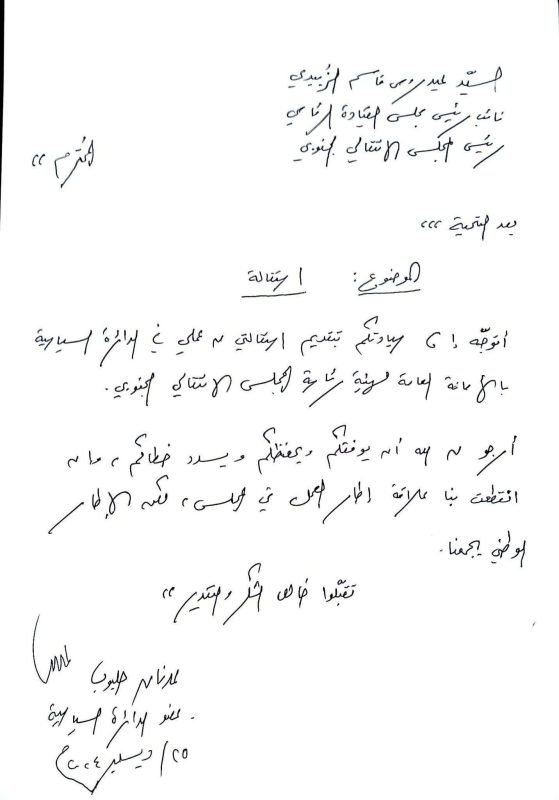 السيّد عيدروس قاسم الزُبيدي
نائب رئيس مجلس القيادة الرئاسي
رئيس المجلس الانتقالي الجنوبي
المحترم ,,
بعد التحية ,,,
الموضوع: استقالة
أتوجّه إلى سيادتكم بتقديم استقالتي من عملي في الدائرة السياسية
بالأمانة العامة لهيئة رئاسة المجلس الانتقالي الجنوبي.
أرجو من الله أن يوفقكم ويحفظكم ويسدد خطاكم، وإن
انقطعت بنا علاقة إطار العمل في المجلس، فكن الإطار
الوطني يجمعنا.
تقبّلوا خالص الشكر والتقدير ,,
عضو الدائرة السياسية.
٢٥/ ديسمبر ٢٠٢٤م